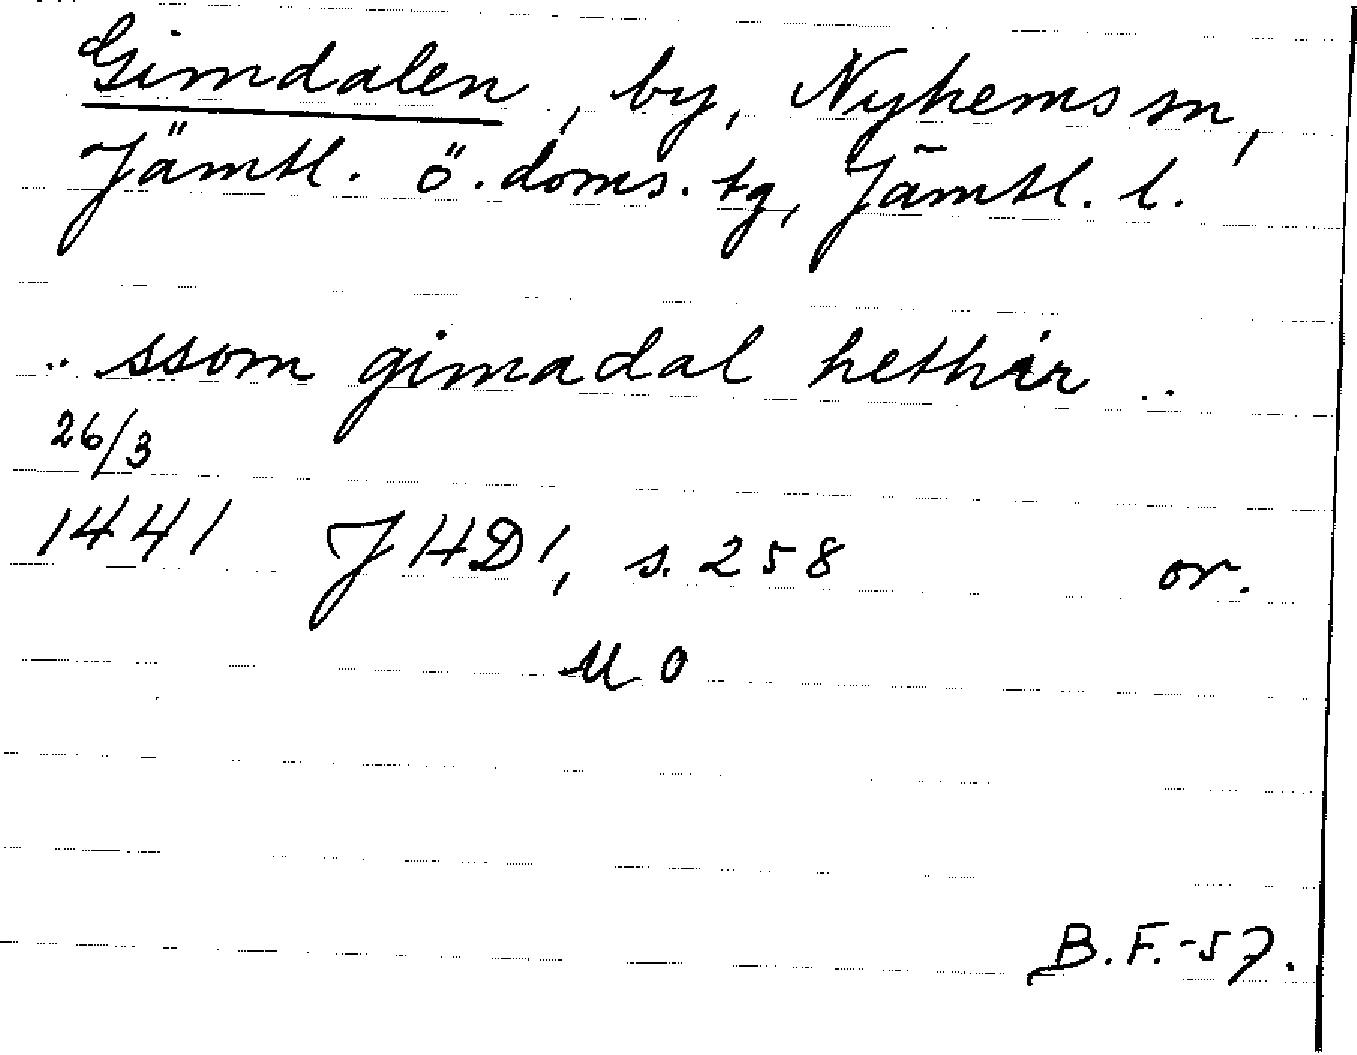 Gimdalen, by, Nyhems sn,
Jämtl. ö. doms. tg, Jämtl. l.
.. ssom gimadal hethir ..
26/3
1441 JHD 1, s. 258 or.
U O
B.F.-57.